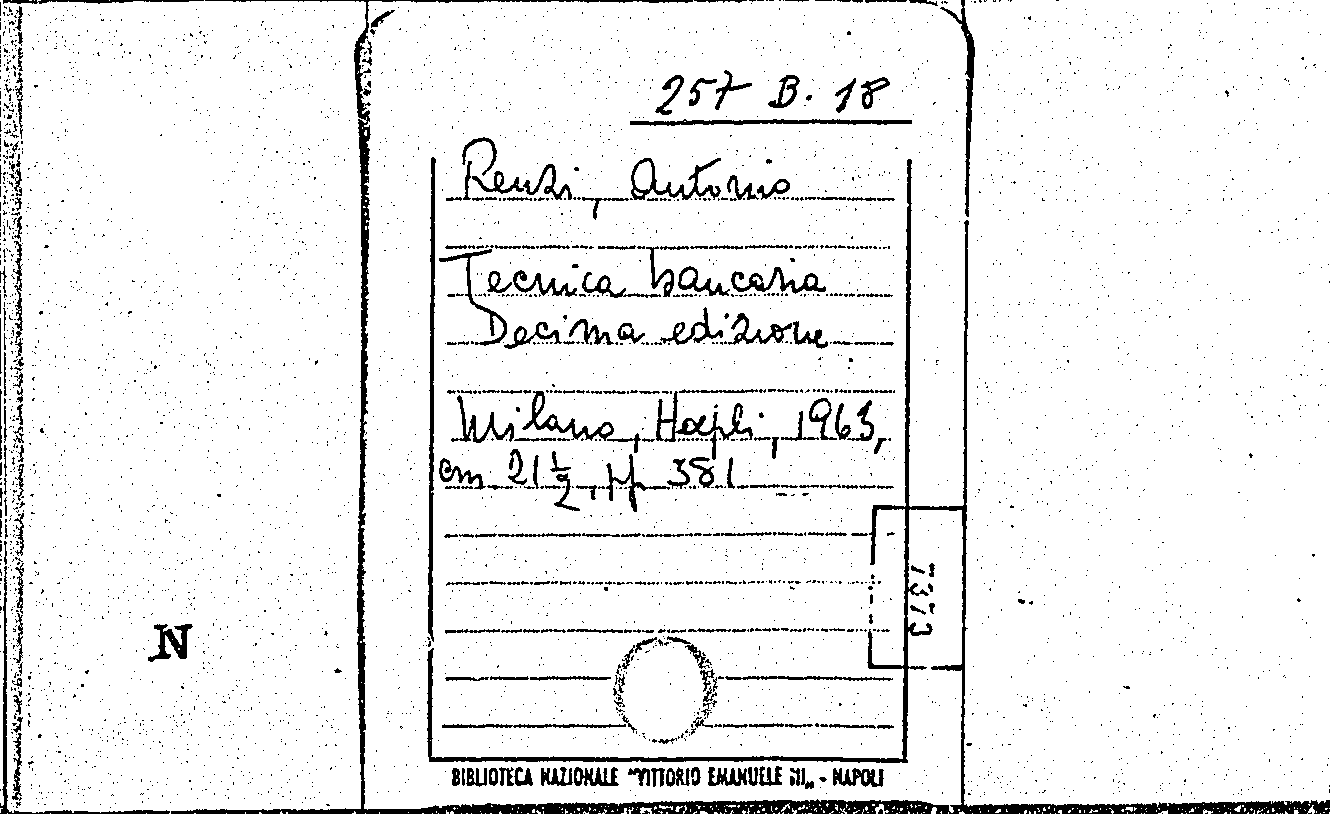 257 B. 18
Renzi, Antonio
Tecnica bancaria
Decima edizione
Milano, Hoepli, 1963,
cm 21 ½, pp 381
7373
N
BIBLIOTECA NAZIONALE "VITTORIO EMANUELE III„ - NAPOLI